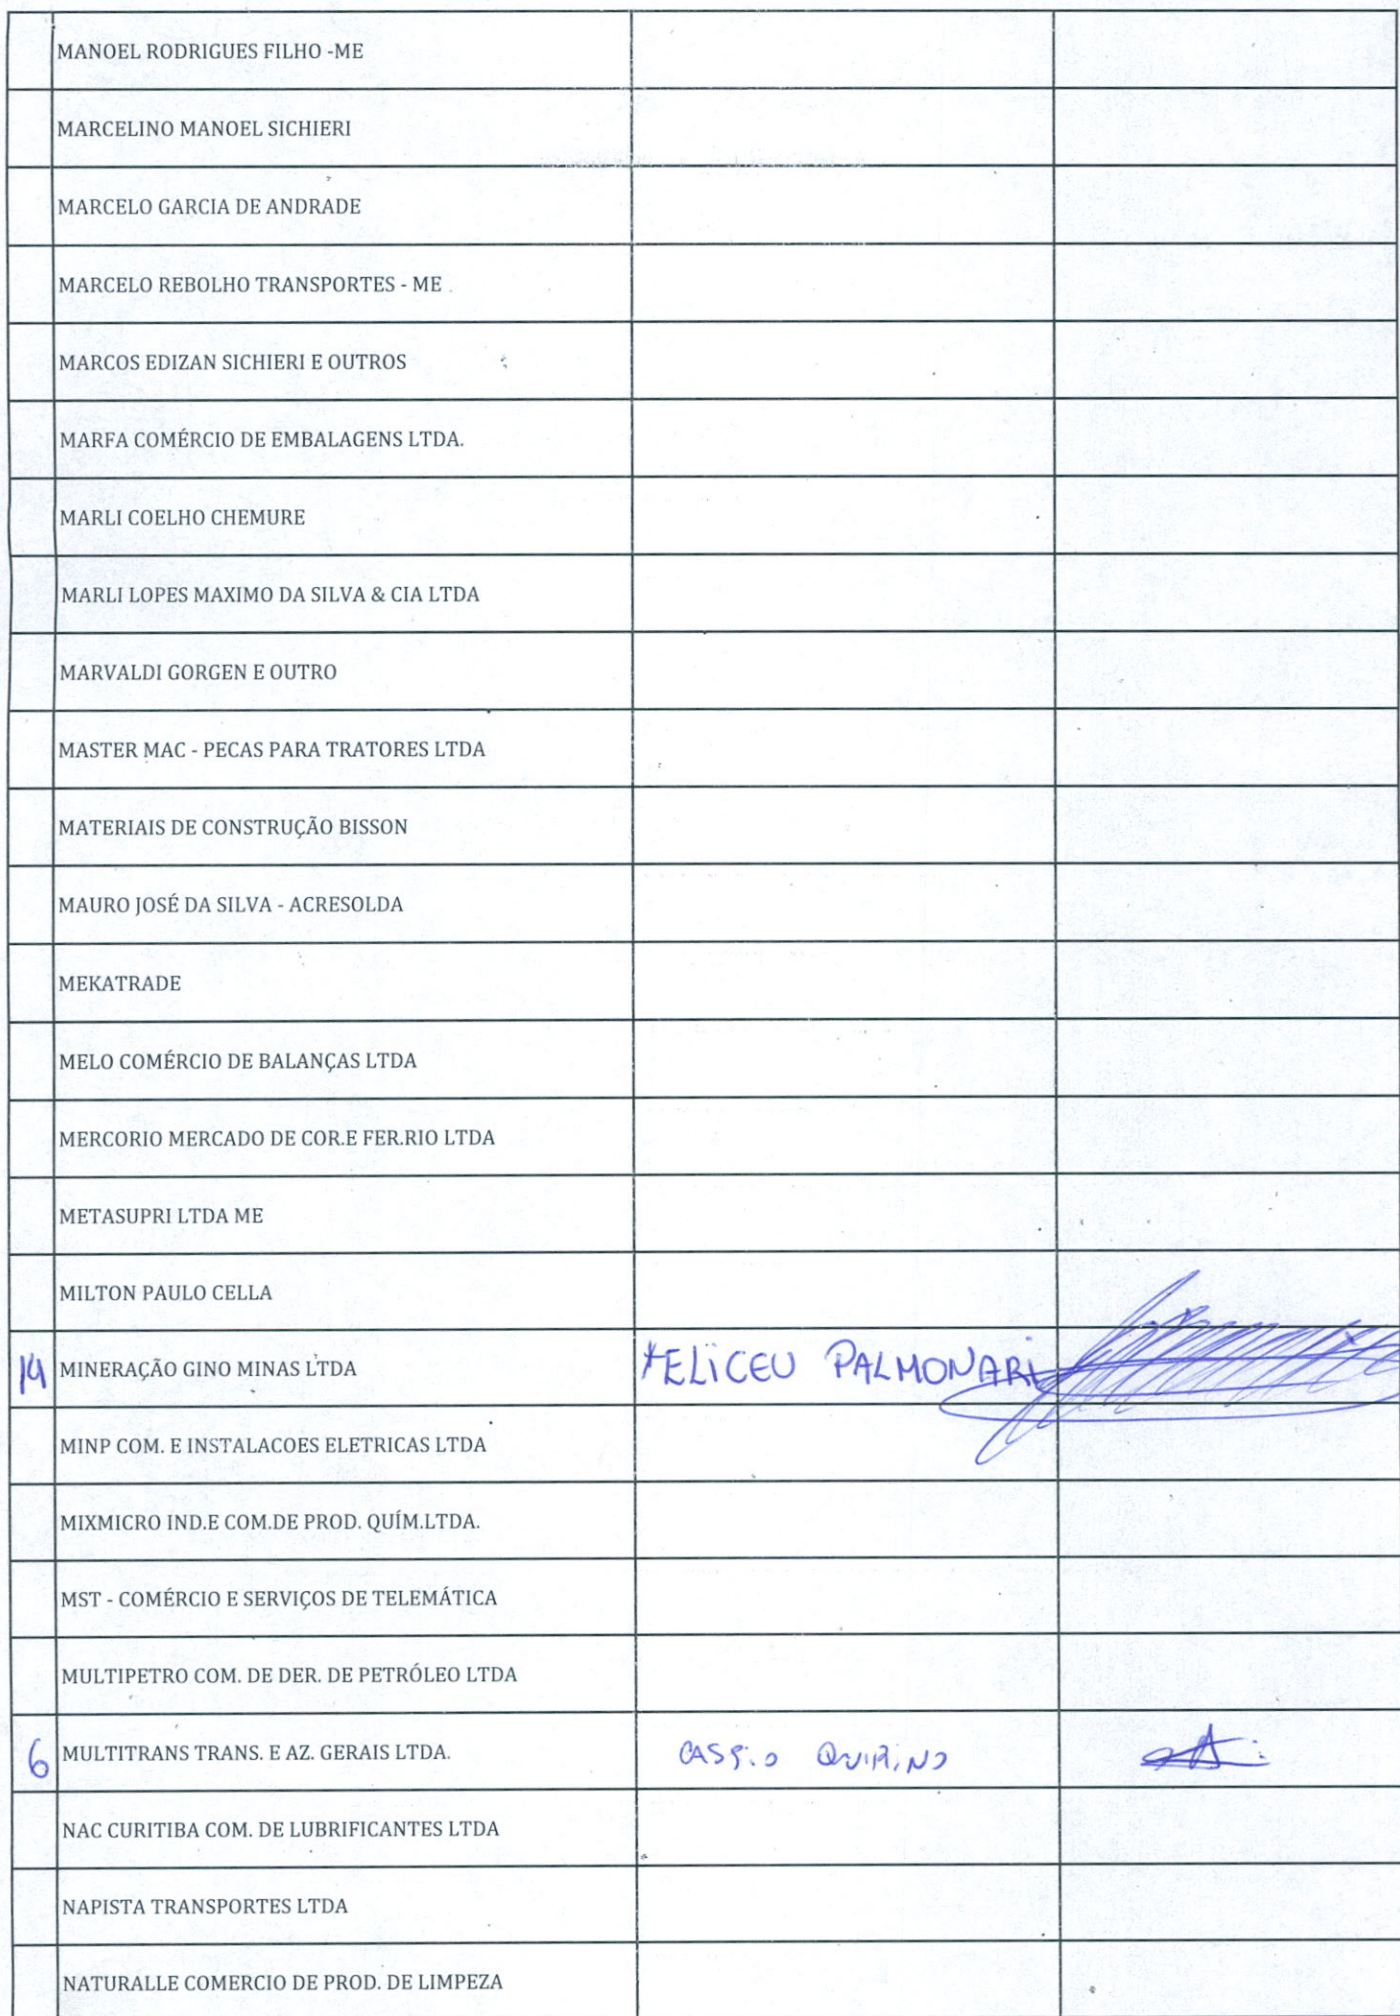 MANOEL RODRIGUES FILHO -ME
MARCELINO MANOEL SICHIERI
MARCELO GARCIA DE ANDRADE
MARCELO REBOLHO TRANSPORTES - ME
MARCOS EDIZAN SICHIERI E OUTROS
MARFA COMÉRCIO DE EMBALAGENS LTDA.
MARLI COELHO CHEMURE
MARLI LOPES MAXIMO DA SILVA & CIA LTDA
MARVALDI GORGEN E OUTRO
MASTER MAC - PECAS PARA TRATORES LTDA
MATERIAIS DE CONSTRUÇÃO BISSON
MAURO JOSÉ DA SILVA - ACRESOLDA
MEKATRADE
MELO COMÉRCIO DE BALANÇAS LTDA
MERCORIO MERCADO DE COR.E FER.RIO LTDA
METASUPRI LTDA ME
MILTON PAULO CELLA
14 MINERAÇÃO GINO MINAS LTDA PALMONARI
MINP COM. E INSTALACOES ELETRICAS LTDA
MIXMICRO IND.E COM.DE PROD. QUÍM.LTDA.
MST - COMÉRCIO E SERVIÇOS DE TELEMÁTICA
MULTIPETRO COM. DE DER. DE PETRÓLEO LTDA
6 MULTITRANS TRANS. E AZ. GERAIS LTDA. CASSIO QUIRINO
NAC CURITIBA COM. DE LUBRIFICANTES LTDA
NAPISTA TRANSPORTES LTDA
NATURALLE COMERCIO DE PROD. DE LIMPEZA